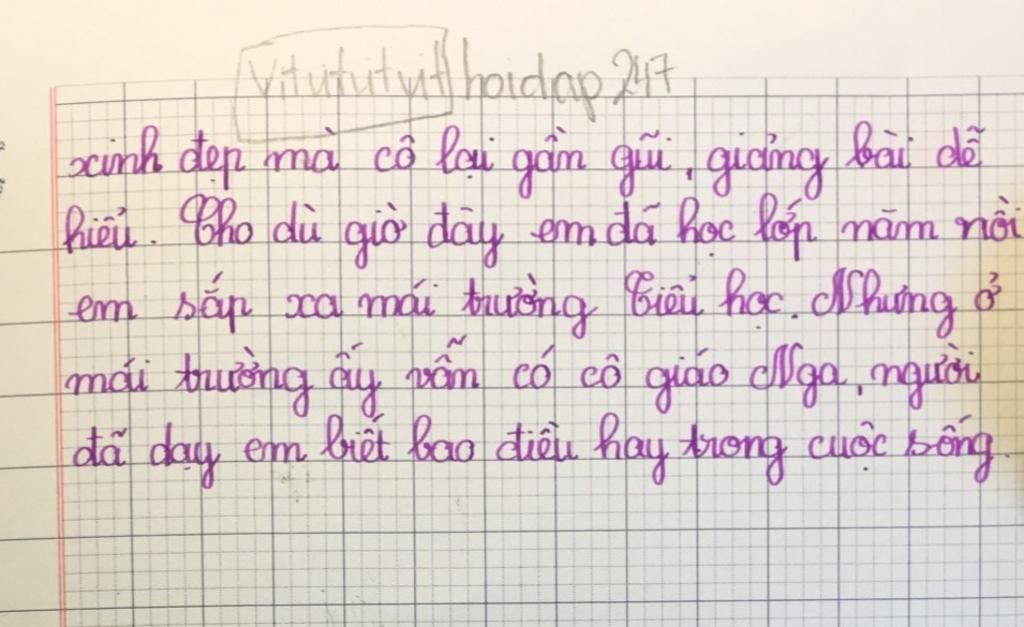 Vitutituyt hoidap247
xinh đẹp mà cô lại gần gũi, giảng bài dễ
hiểu. Cho dù giờ đây em đã học lớp năm rồi
em sắp xa mái trường Tiểu học. Nhưng ở
mái trường ấy vẫn có cô giáo Nga, người
đã dạy em biết bao điều hay trong cuộc sống.